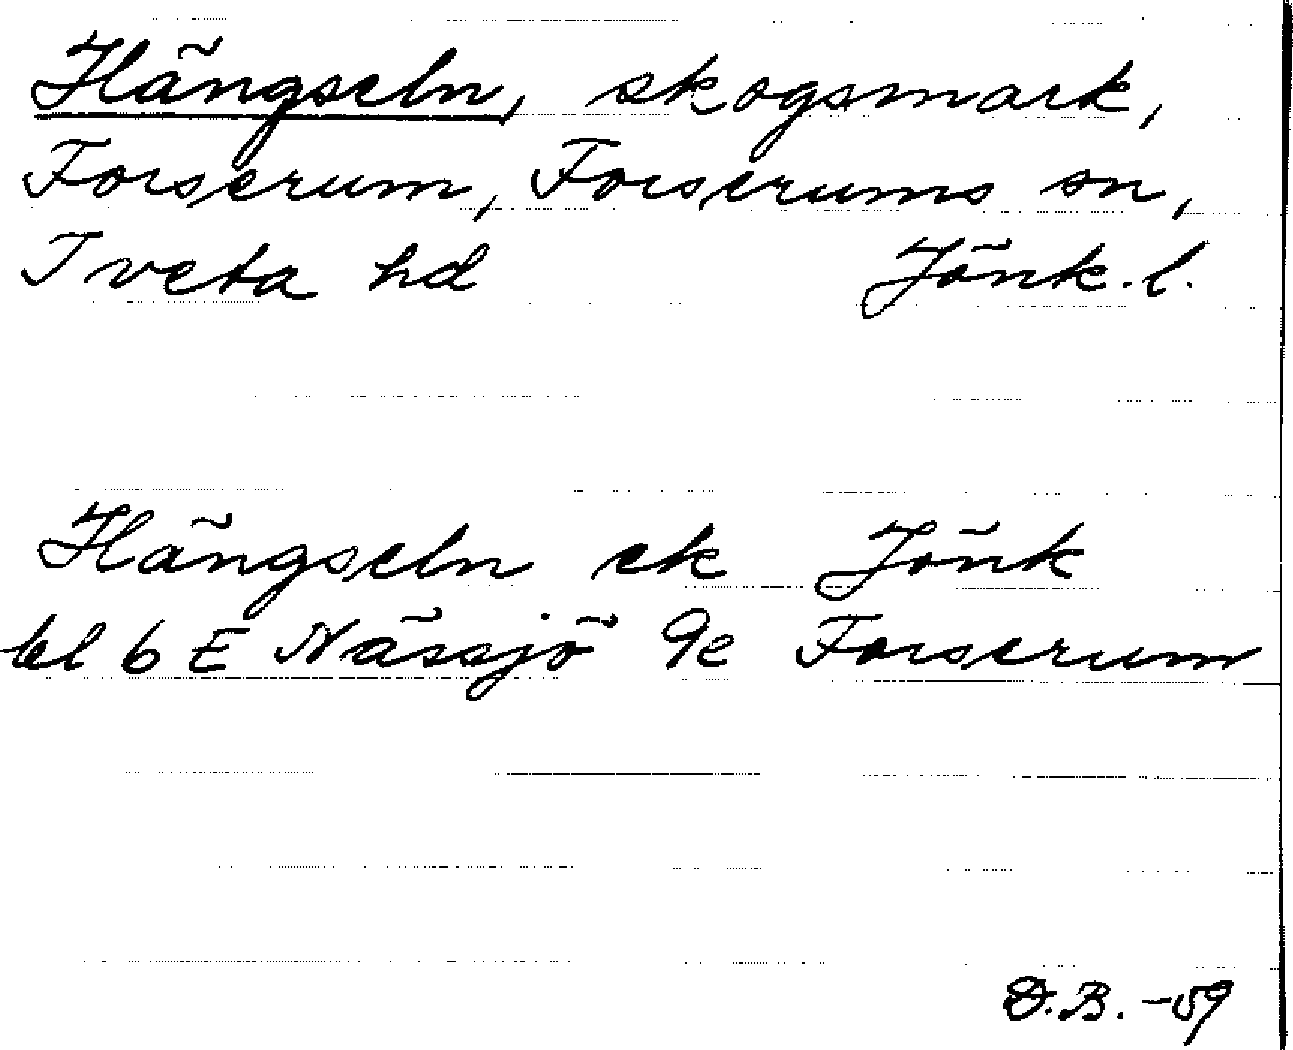 Hängseln, skogsmark,
Forserum, Forserums sn,
Tveta hd Jönk. l.
Hängseln ek Jönk
bl 6 E Nässjö 9e Forserum
D.B. -59